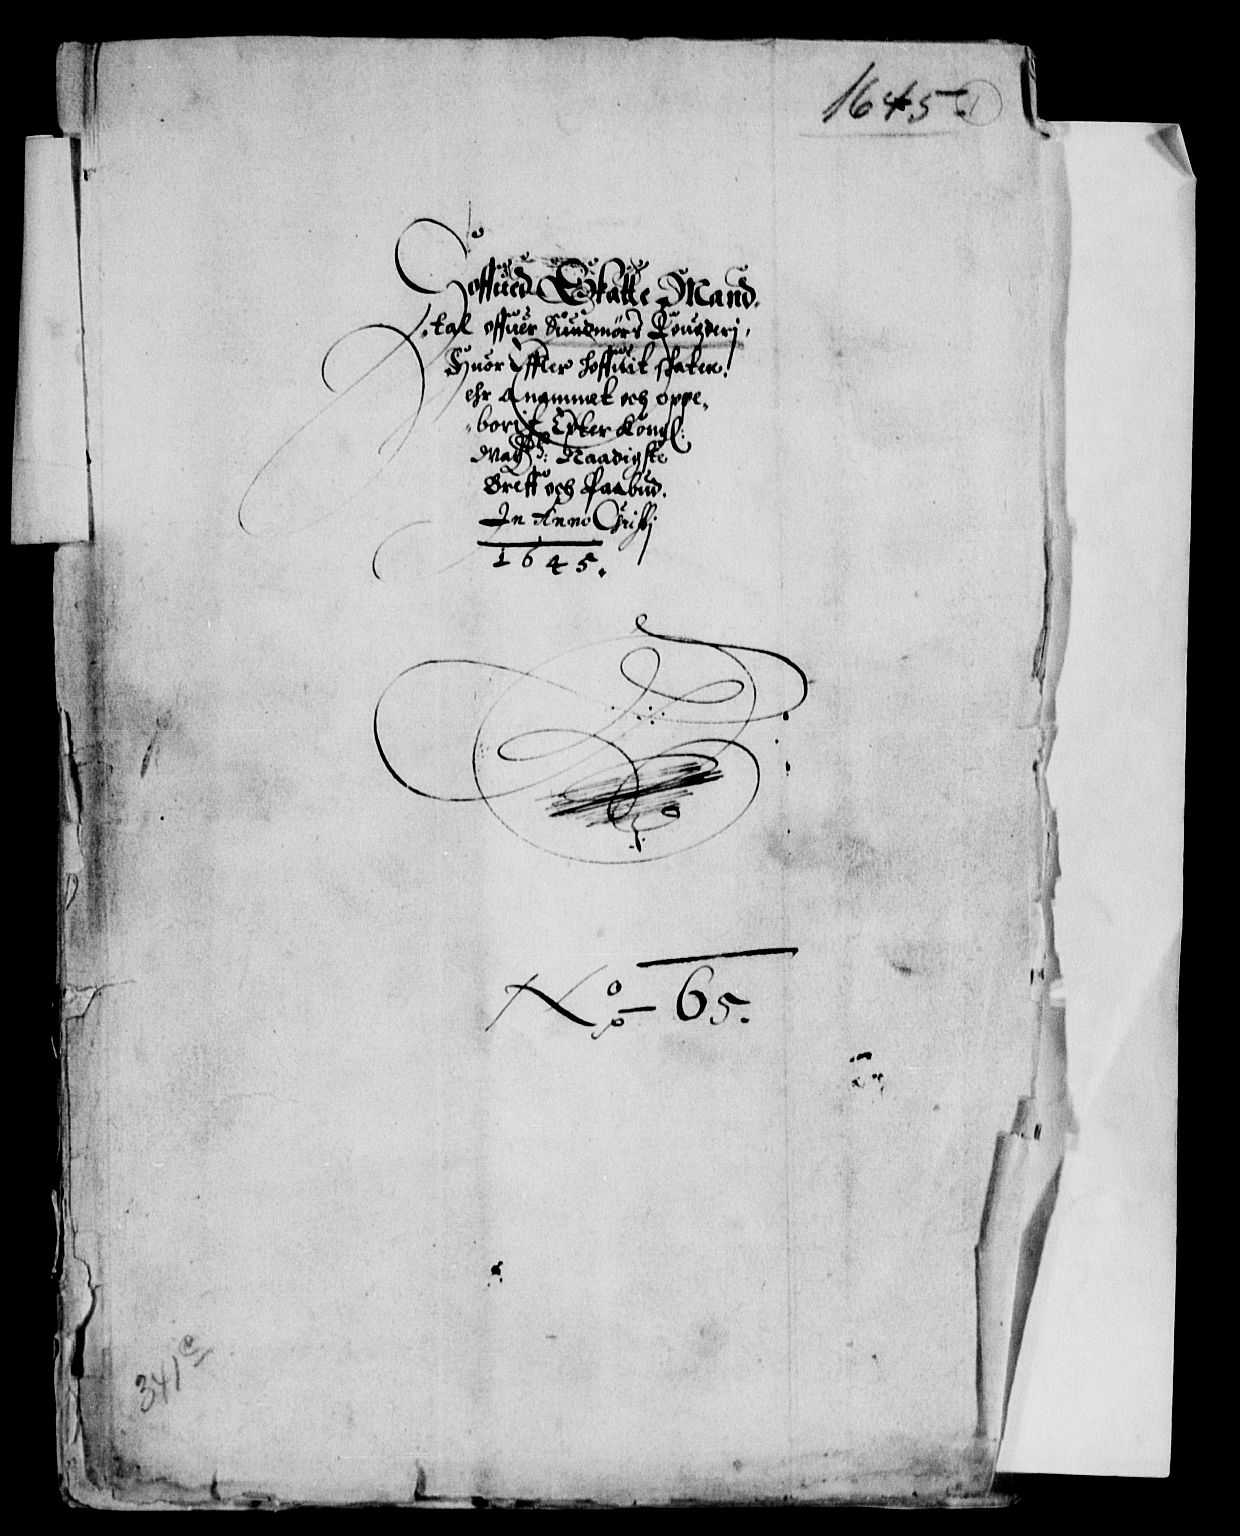 1645. 1
Hoffued Skatte Mand-
tal offuer Sundmørs Fougderj,
Huor Effter hoffuit skaten
ehr Anammet och oppe-
borit Epter Kongl:
May: Naadigste
Breff och Paabud.
In Anno Christj
1645.
No 65.
341